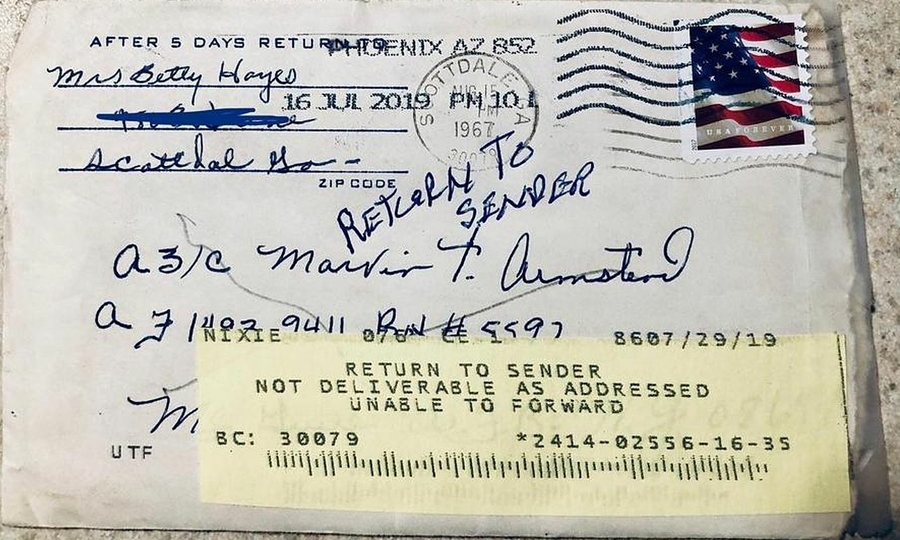 AFTER 5 DAYS RETURN TO
PHOENIX AZ 852
Mrs Betty Hayes
16 JUL 2019 PM 10 L
SCOTTDALE, GA
AUG 15
PM
1967
30079
Scottdal Ga -
ZIP CODE
USA FOREVER
RETURN TO
SENDER
A3/c Marvin T. Armstead
A F 1492 9411 Rm # 5597
NIXIE CE 1 8607/29/19
RETURN TO SENDER
NOT DELIVERABLE AS ADDRESSED
UNABLE TO FORWARD
BC: 30079 *2414-02556-16-35
UTF